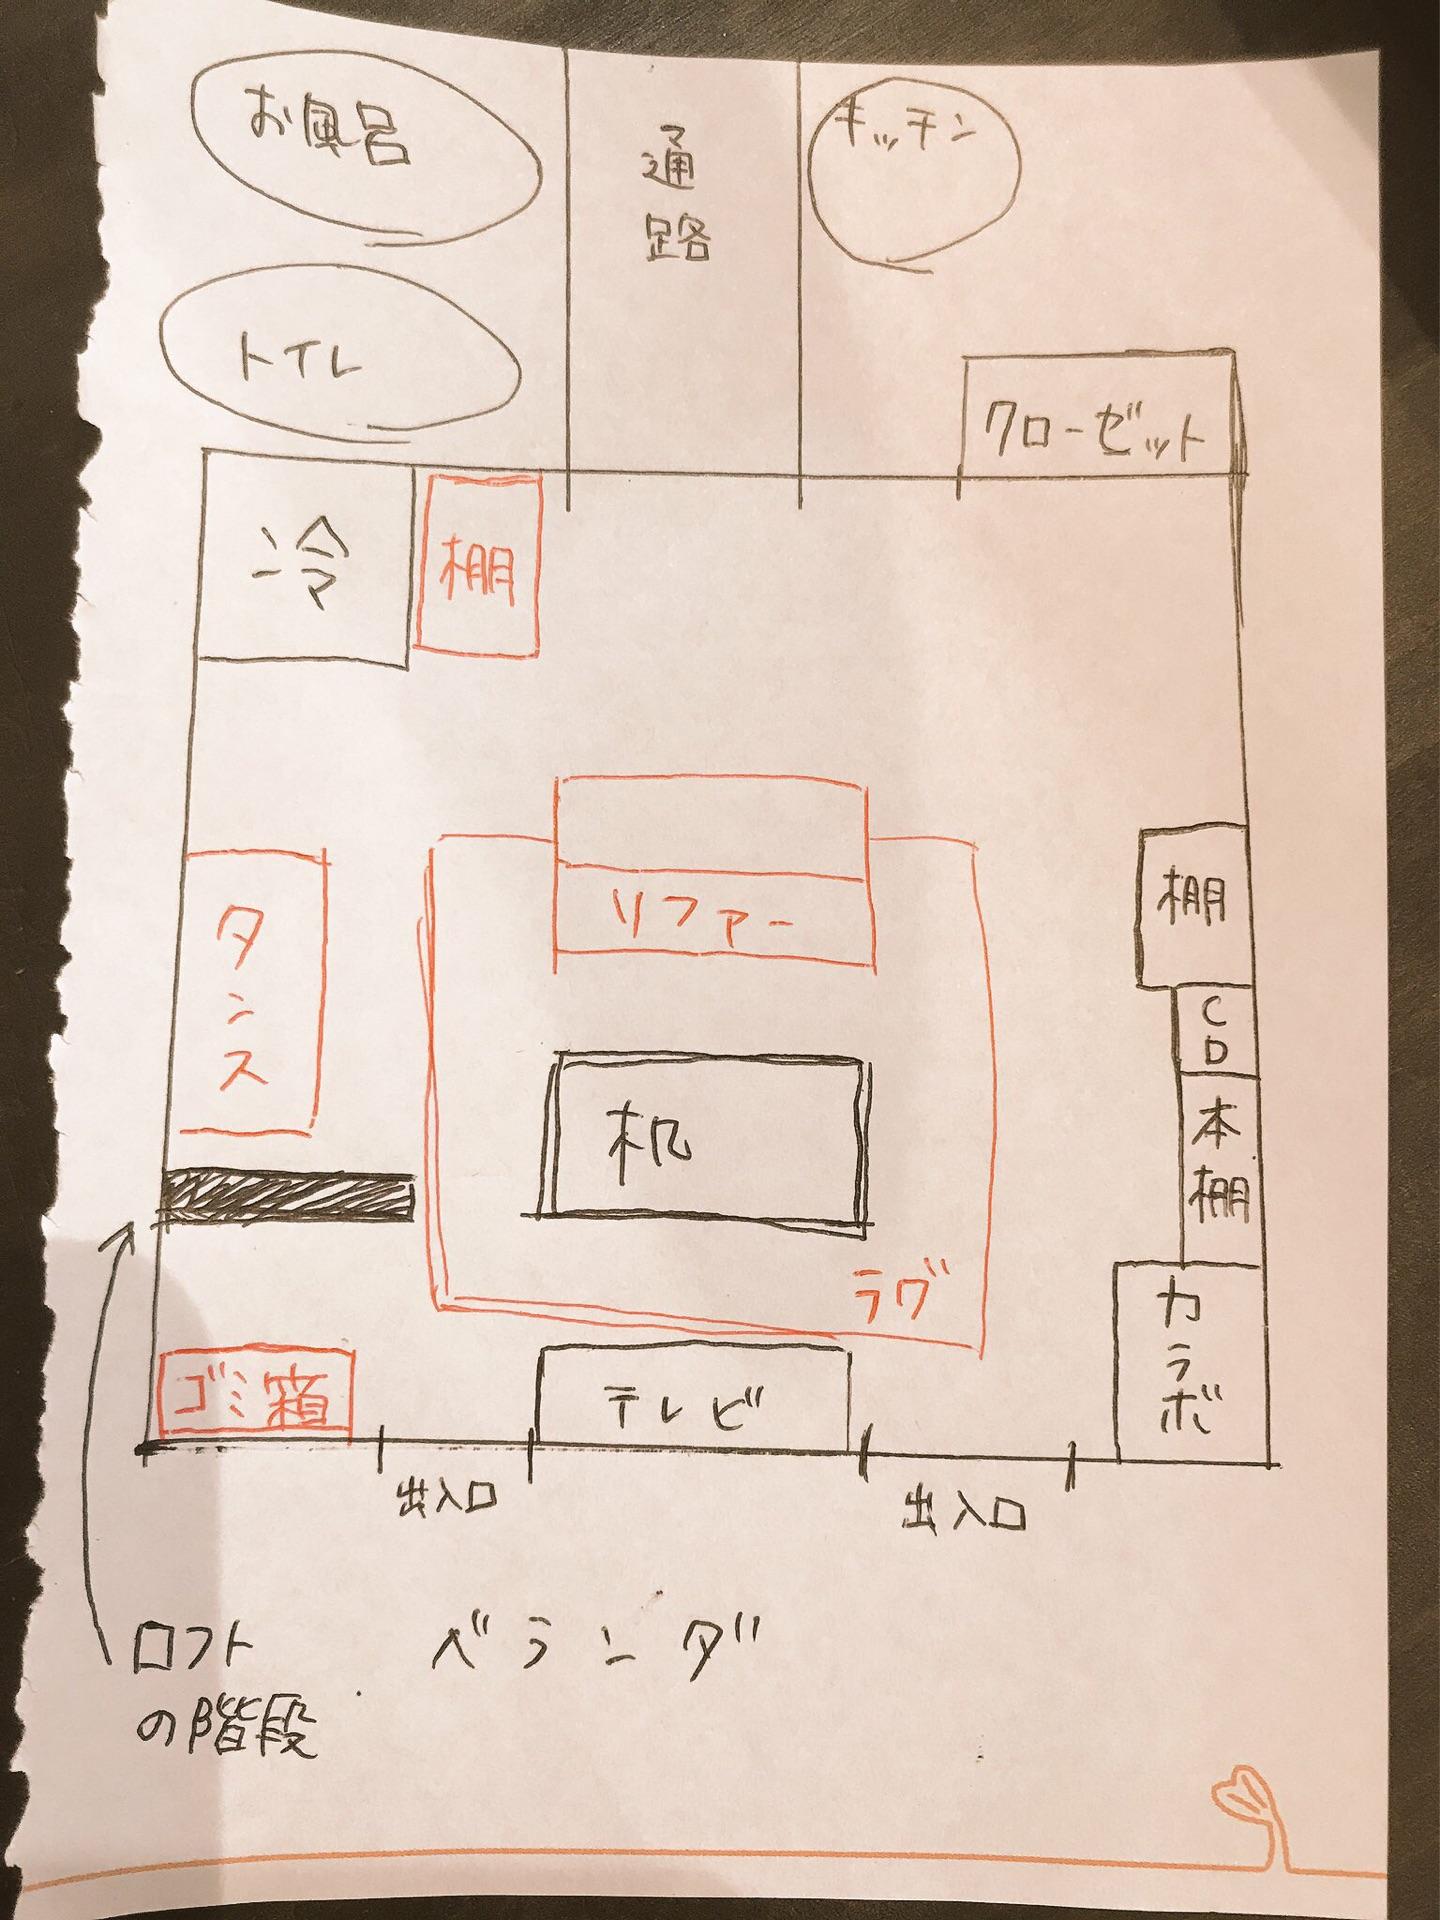 お風呂
通路
キッチン
トイレ
クローゼット
冷
棚
タンス
リファー
棚
CD
机
本棚
ラグ
カラボ
ゴミ箱
テレビ
出入口
出入口
ロフト
の階段
ベランダ